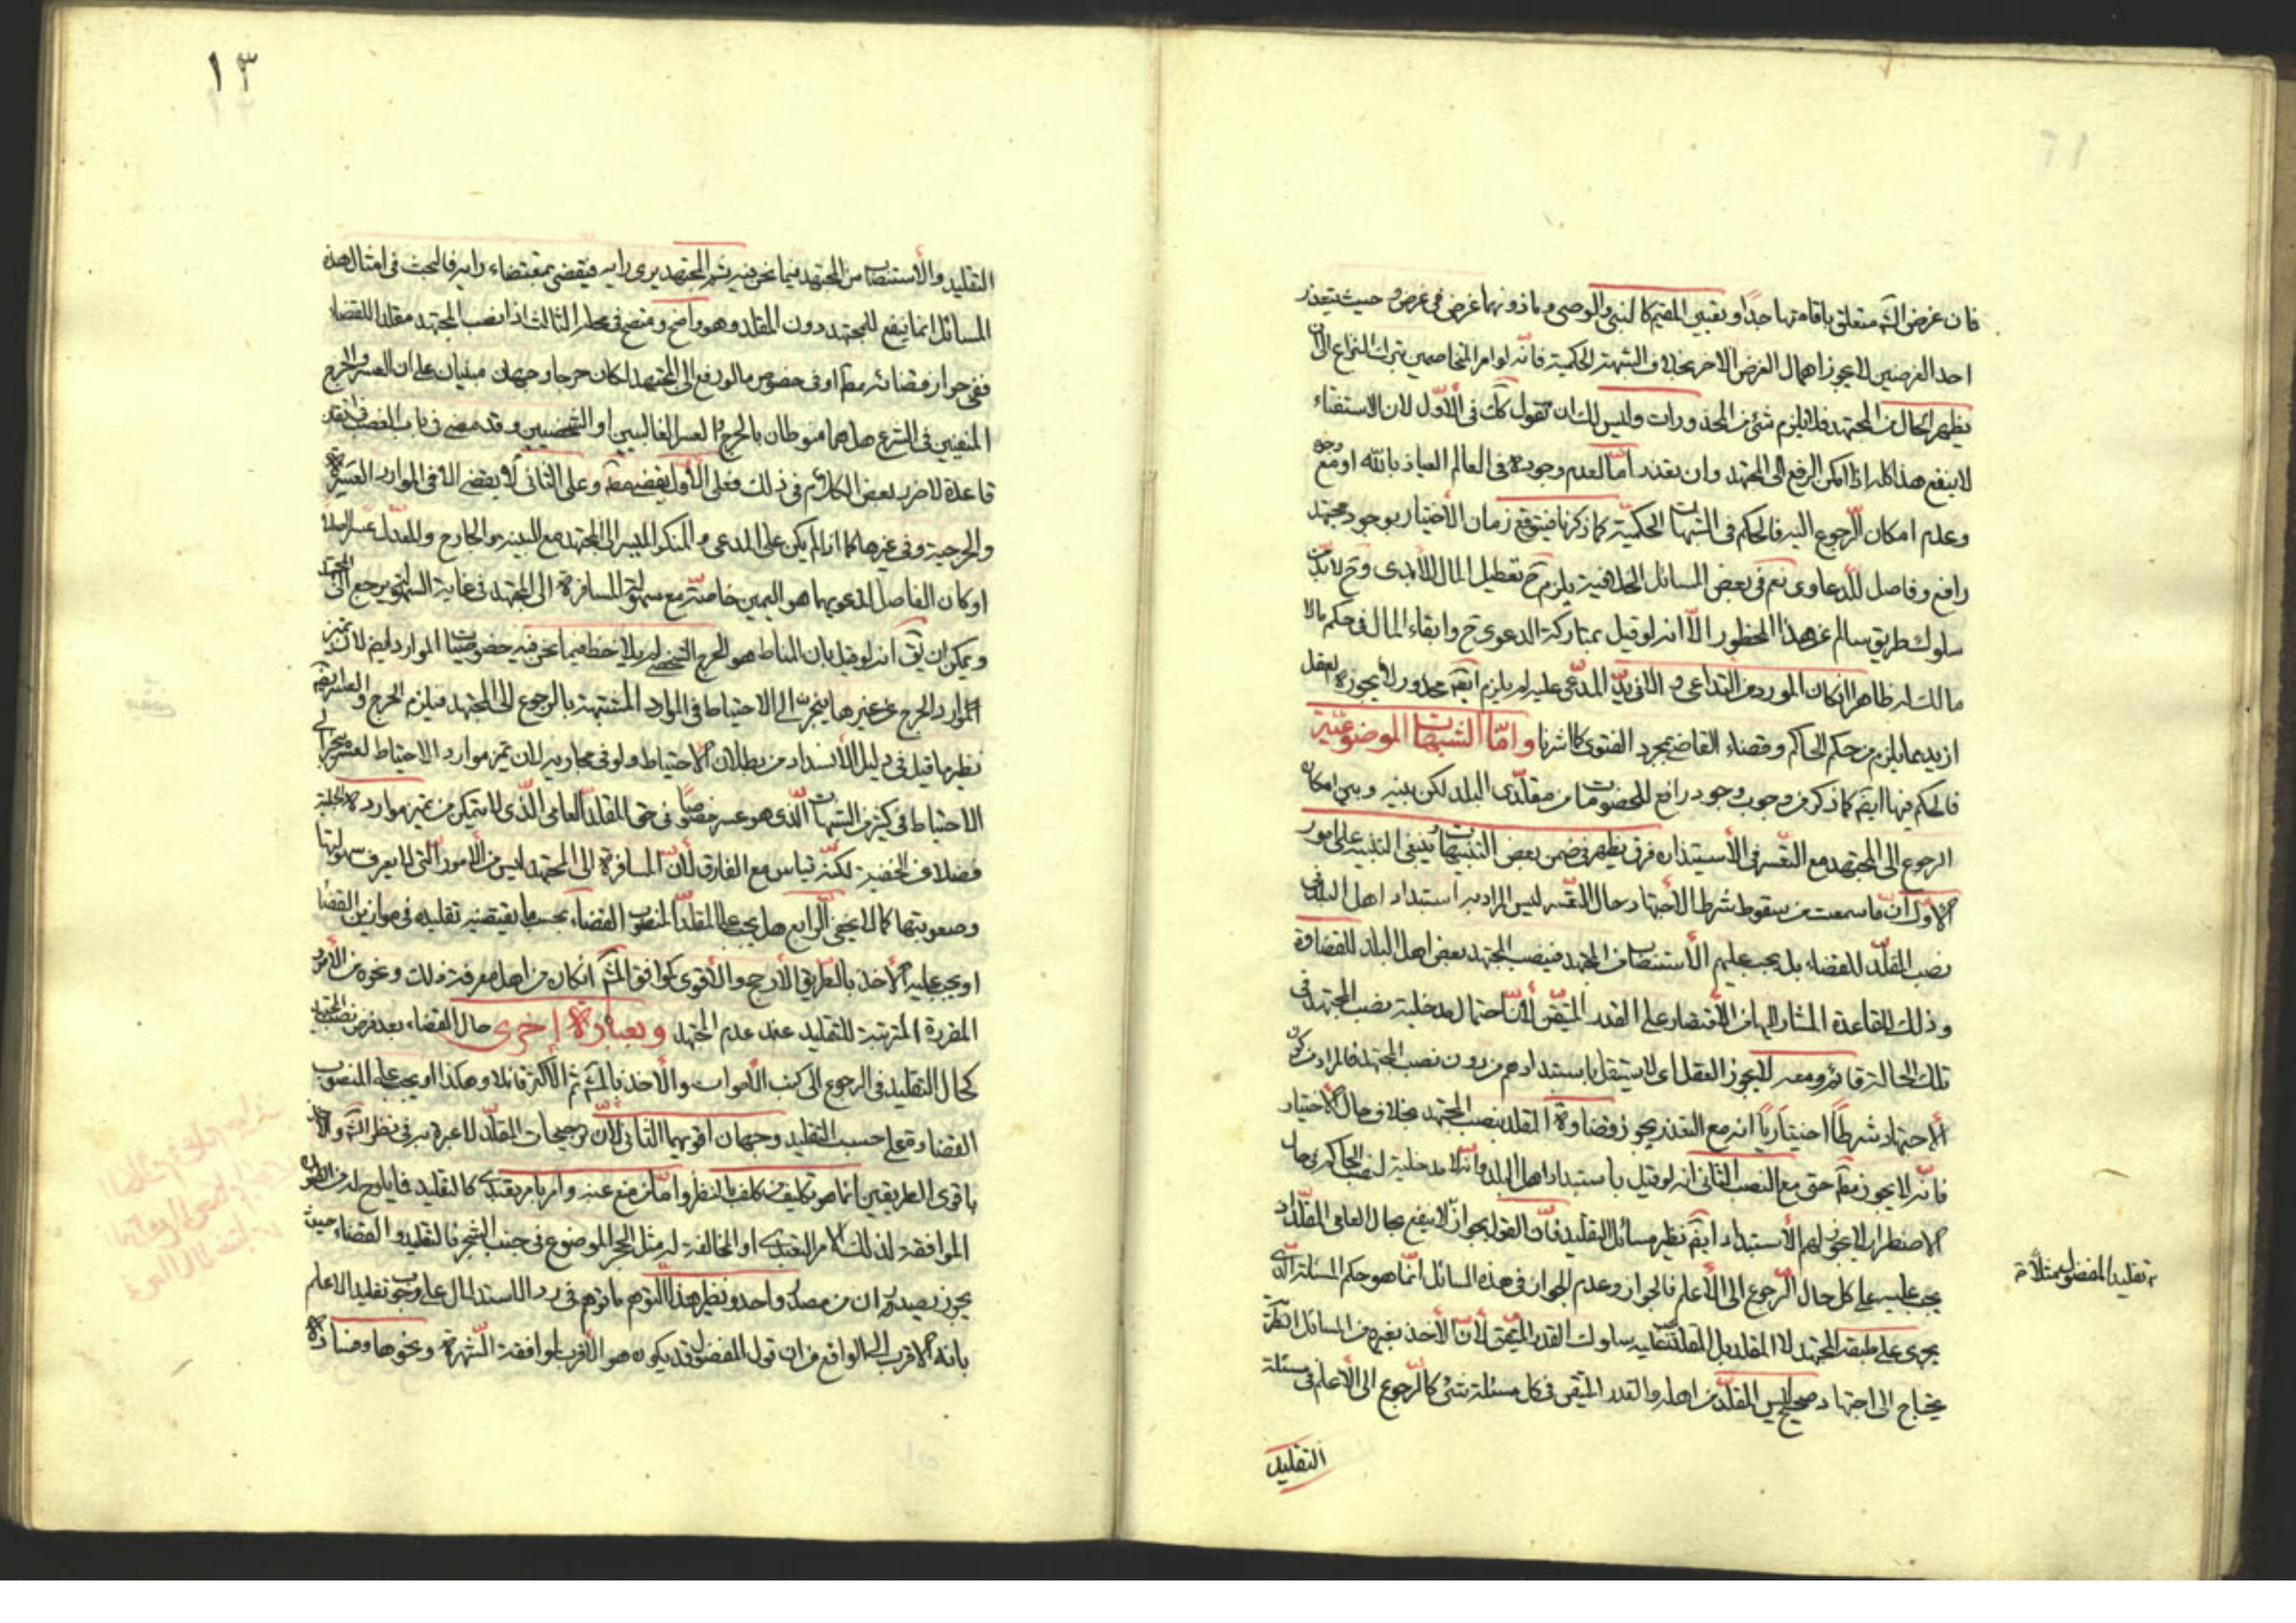 فان غرض الشه متعلق باقامتها جدا وبقبى المقيم كالنبى والوصى وماذونهما غرض فى غرض وحيث يتعذر
احد الغرضين لا يجوز اهمال الغرض الاخر بخلاف الشبهة الحكمية فانه لو امر المتخاصمين بترك النزاع الى ان
يظهر الحال من المجتهد فلا يلزم شئ من المحذورات وليس لك ان تقول كك فى الاول لان الاستفتاء
لا ينفع هذا كله اذا امكن الرفع الى المجتهد وان تعذر اما لعدم وجوده فى العالم العياذ بالله او مع وجوده
وعدم امكان الرجوع اليه فالحكم فى الشبهات الحكمية كما ذكرنا فيتوقع زمان الاختيار بوجود مجتهد
رافع وفاصل للدعاوى نعم فى بعض المسائل الخلافية يلزم ح تعطيل المال الابدى وح لابد من
سلوك طريق سالم عن هذا المحظور الا انه لو قيل بمتاركة الدعوى ح وابقاء المال فى حكم مالا
مالك له ظاهرا انكان المورد من التداعى و الا فى يد المدعى عليه لم يلزم ايضا محذور لا يجوزه العقل
ازيد مما يلزم من حكم الحاكم وقضاء القاضى بمجرد الفتوى كما اشرنا واما الشبهات الموضوعية
فالحكم فيها ايضا كما ذكر من وجوب وجود رافع للخصومات من مقلدى البلد لكن بينه وبين امكان
الرجوع الى المجتهد مع التعسر فى الاستيذان فرق يظهر فى ضمن بعض التنبيهات وينبغى التنبيه على امور
الاول ان ما سمعت من سقوط شرط الاجتهاد حال التعسر ليس المراد به استبداد اهل البلد فى
نصب المقلد للقضاء بل يجب عليهم الاستنصاب من المجتهد فينصب المجتهد بعض اهل البلد للقضاوة
وذلك للقاعدة المشار اليها من الاقتصار على القدر المتيقن لان احتمال مدخلية نصب المجتهد فى
تلك الحالة قائم ومعه لا يجوز العقل اى لا يستقل باستبدادهم من دون نصب المجتهد فالمراد من كون
الاجتهاد شرطا اختياريا انه مع التعذر يجوز قضاوة المقلد بنصب المجتهد بخلاف حال الاختيار
فانه لا يجوز مط حتى مع النصب الثانى انه لو قيل باستبداد اهل البلد وانه لا مدخلية لنصب الحاكم فى حال
الاضطرار لا يجوز لهم الاستبداد ايضا نظير مسائل التقليد فان القول بجواز لا ينفع بحال العامى المقلد اذ
يجب عليه على كل حال الرجوع الى الاعلم فالجواز وعدم الجواز فى هذه المسائل انما هو حكم المسئلة الذى
يجرى على طبقه المجتهد لا المقلد بل المقلد يتعين عليه سلوك القدر المتيقن لان الاخذ بغيره من المسائل النظرية
يحتاج الى اجتهاد صحيح ليس المقلد من اهله والقدر المتيقن فى كل مسئلة شئ كالرجوع الى الاعلم فى مسئلة
التقليد
تقليد المفضول مثلا
١٣
التقليد والاستنصاب من المجتهد فيما نحن فيه ثم المجتهد يرى رايه فيقضى بمقتضاء رايه فالبحث فى امثال هذه
المسائل انما ينفع للمجتهد دون المقلد وهو واضح ومنضح فى محله الثالث اذا نصب المجتهد مقلدا للقضاء
ففى جواز قضائه مط او فى خصوص مالو رفع الى المجتهد لكان حرجا وجهان مبنيان على ان العسر والحرج
المنفيين فى الشرع هل هما منوطان بالحرج والعسر الغالبيين او الشخصيين وقد مضى فى باب الغصب فى تقد
قاعدة لا ضرر بعض الكلام فى ذلك فعلى الاول يقضى مط وعلى الثانى لا يقضى الا فى الموارد العسيرة
والحرجية وفى غيرها كما اذا لم يكن على المدعى و المنكر المسير الى المجتهد مع البينه والجارح والمعدل عسر اصلا
او كان الفاصل لدعويهما هو اليمين خاصة مع سهولة المسافرة الى المجتهد فى غاية السهولة يرجع الى المجتهد
ويمكن ان يق انه لو قيل بان المناط هو الحرج الشخصى لم يلاحظ فيما نحن فيه خصوصيات الموارد ايض لان تميز
الموارد الحرج عن غيرها ينجر الى الاحتياط فى الموارد المشتبهة بالرجوع الى المجتهد فيلزم الحرج والعسر ايضا
نظير ما قيل فى دليل الانسداد من بطلان الاحتياط ولو فى مجاريه لان تميز موارد الاحتياط لعسره ينجر الى
الاحتياط فى كثير من الشبهات الذى هو عسر خصوصا فى حق المقلد العامى الذى لا يتمكن من تميز موارده الجلية
فضلا من الخفية لكنه قياس مع الفارق لان المسافرة الى المجتهد ليس من الامور التى لا يعرف سهولتها
وصعوبتها كما لا يخفى الرابع هل يجب على المقلد المنصوب القضاء بحسب ما يقتضيه تقليده فى موازين القضاء
او يجب عليه الاخذ بالطريق الارجح والاقوى كموافق المشهور انكان من اهل معرفة ذلك ونحوه من الامور
المقررة المترتبة للتقليد عند عدم المجتهد وبعبارة اخرى حال القضاء بعد فرض نصب المجتهد
كحال التقليد فى الرجوع الى كتب الاموات والاخذ بالمشهور ثم الاكثر قائلا وهكذا او يجب على المنصوب
القضاوة على حسب التقليد وجهان اقويهما الثانى لان ترجيحات المقلد لا عبرة به فى نظر الشه والاخذ
باقوى الطريقين انما هو تكليف من كلف بالنظر واما من منع عنه وامر بامر تعبدى كالتقليد فما يلوح له من النظر
الموافقة لذلك الامر التعبدى او المخالفة له مثل الحجر الموضوع فى جنب الشجر فالتقليد والقضاء حيث
يجوز يصيدان من مصدر واحد ونظير هذا التوهم ما توهم فى رد الاستدلال على وجوب تقليد الاعلم
بانه الاقرب الى الواقع من ان قول المفضول قد يكون هو الاقرب لموافقة الشهرة ونحوها وفساده